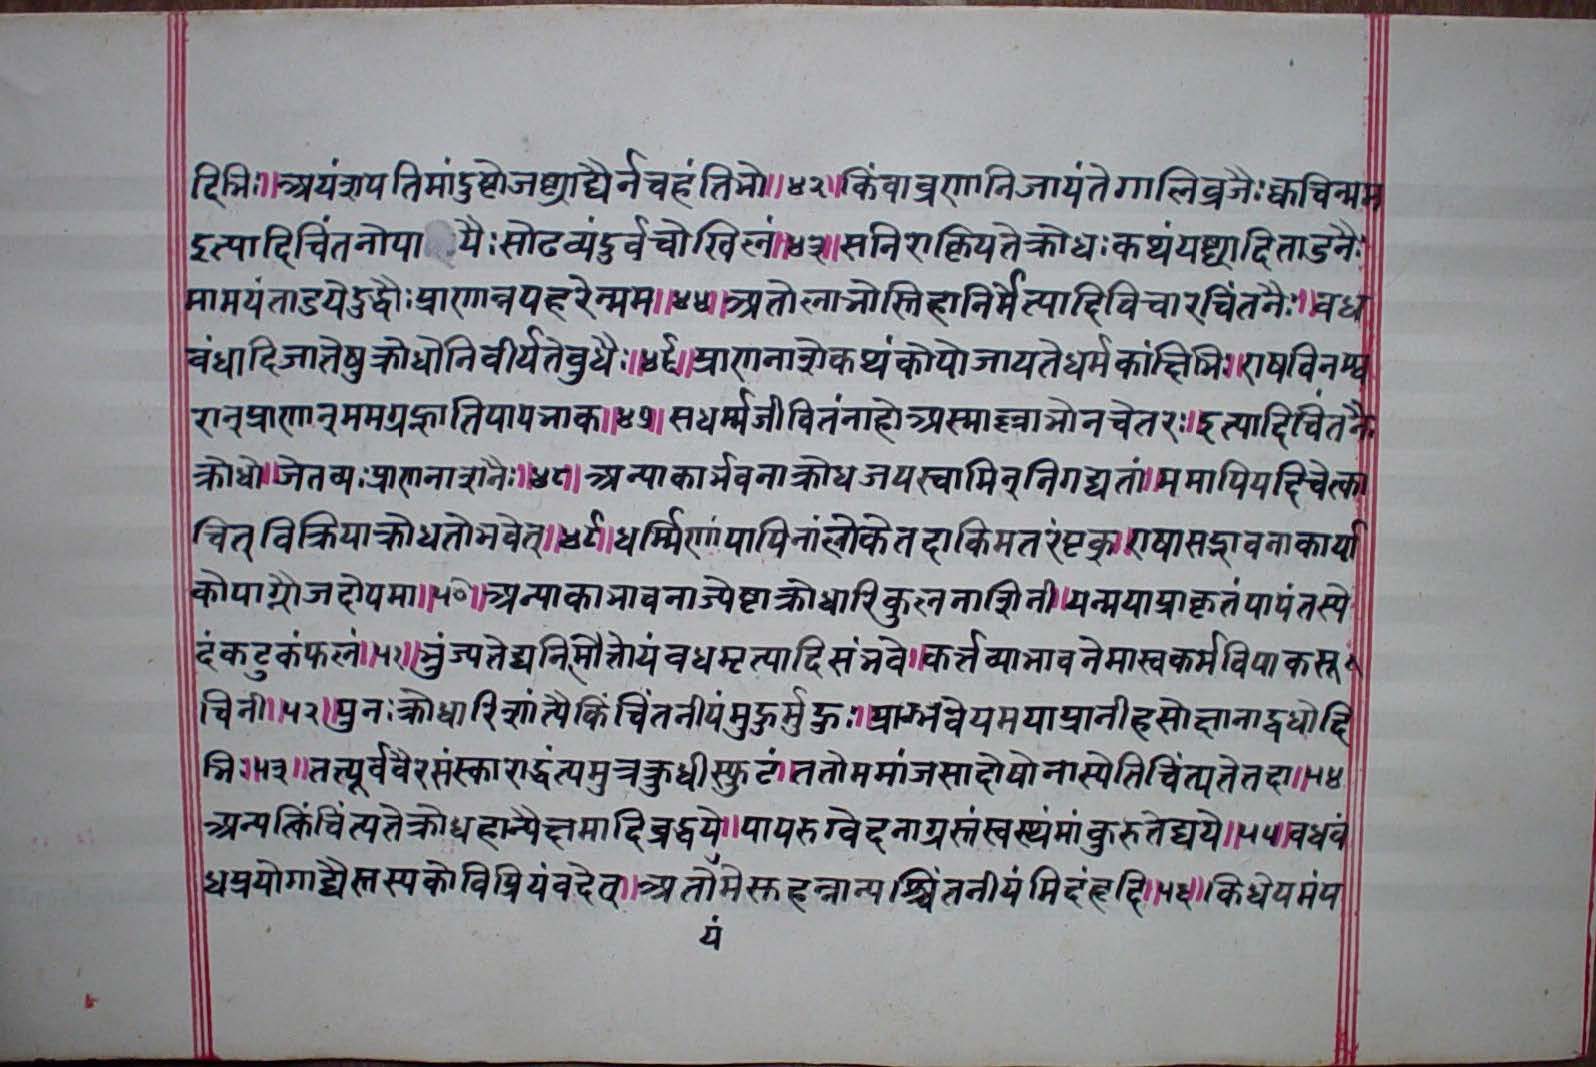 दिभिः॥अयंशपतिमांदुष्टोजष्ट्याद्यैर्नचहंतिभो॥४२॥किंवाव्रणानिजायंतेगालिव्रजैःक्वचिन्मम
इत्यादिचिंतनोपा यैःसोढव्यंदुर्वचोखिलं॥४३॥सनिराक्रियतेक्रोधःकथंयष्ट्यादिताडनैः
मामयंताडयेद्दुद्धौःप्राणान्नपहरेन्मम॥४५॥अतोलाभोस्तिहानिर्मेत्यादिविचारचिंतनैः॥वध
बंधादिजातेषुक्रोधोनिवीर्यतेबुधैः॥४६॥प्राणनाशेकथंकोपोजायतेधर्मकांक्षिभिः॥एषविनश्व
रान्प्राणान्ममगृह्णातिपापभाक॥४७॥सधर्म्मजीवितंनाहोअस्माल्लाभोनचेतरः॥इत्यादिचिंतनैः
क्रोधो॥जेतव्यःप्राणनाशनैः॥४८॥अन्याकार्भवनाक्रोधजयस्वामिन्निगद्यतां॥ममापियदिचेत्का
चित्विक्रियाक्रोधतोभवेत्॥४९॥धर्म्मिणांपापिनांलोकेतदाकिमतरंष्टक्॥एषासद्भावनाकार्या
कोपाग्नौजदोपमा॥५०॥अन्याकाभावनाज्येष्टाक्रोधारिकुलनाशिनी॥यन्मयाप्राकृतंपापंतस्ये
दंकटुकंफलं॥५१॥भुंज्यतेद्यनिमित्तोयंवधमृत्यादिसंभवे॥कर्त्तव्याभावनेमास्वकर्मविपाकसू
चिनी॥५२॥पुनःक्रोधारिशांत्यैकिंचिंतनीयंमुहुर्मुहुः॥प्राग्भवेयमयाप्रानीहसोज्ञानाद्वधोदि
भिः॥५३॥तत्पूर्ववैरसंस्काराद्धंत्यमुत्रक्रुधीस्फुटं॥ततोममांजसादोषोनास्येतिचिंत्यतेतदा॥५४
अन्यत्किंचिंत्यतेक्रोधहान्यैक्षमादिवृद्धये॥पापरुग्वेदनाग्रस्तंस्वस्थंमांकुरुतेद्यये॥५५॥वधबं
धप्रयोगाद्यैस्तस्यकोविप्रियंवदेत्॥अतोमेसहन्नान्यश्चिंतनीयंमिदंहृदि॥५६॥किधेयमंप
यं